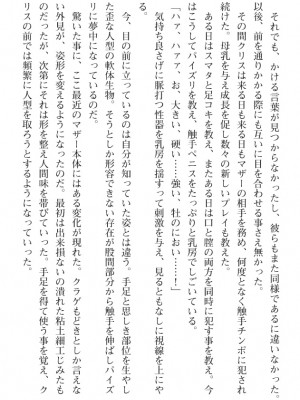 それでも、かける言葉が見つからなかったし、彼らもまた同様であるに違いなかった。
以後、前を通りかかる際にも互いに目を合わせる事さえ無かった。
その間クリスは来る日も来る日もマザーの相手を務め、何度となく触手チンポに犯され
続けた。母乳を与え成長を促し数々の新しいプレイも教えた。
ある日はスマタと足コキを教え、またある日は口と膣の両方を同時に犯す事を教え。今
はこうしてパイズリを教え、触手ペニスをたっぷりと乳房でしごいている。
「ハァ、ハァァ、お、大きい、硬い……強い、牡のにおい……！」
気持ち良さげに脈打つ性器を乳房を揺すって刺激を与え、見るともなしに視線を上にや
る。
今、目の前に立っているのは自分が知っていた姿とは違う。手足と思しき部位を生やし
た歪な人型の軟体生物。そうとしか形容できない存在が股間部分から触手を伸ばしパイズ
リに夢中になっているのだ。
驚いた事に、ここ最近のマザー本体にはある変化が現れた。クラゲもどきとしか言えな
い外見が、姿形を変えるようになったのだ。最初は出来損ないの潰れた粘土細工じみたも
のだったが、次第にそれは形を整え人間味を帯びていった。手足を得て使う事を覚え、ク
リスの前では頻繁に人型を取ろうとするようになっていった。